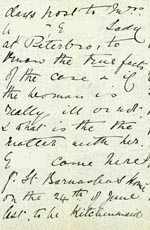 days post to Mrs
G Lady
at Peterboro, to
know the true facts
of the case & if
the woman is
really ill or not.
& what is the the
matter with her.
G came here
fr. St. Barnabas Home
on the 24th of June
last. to be Kitchenmaid